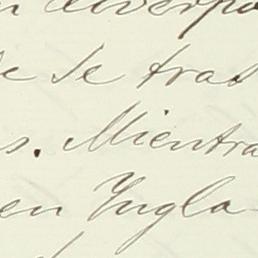 n Liverpo
e se tras
s. Mientra
en Yngla-